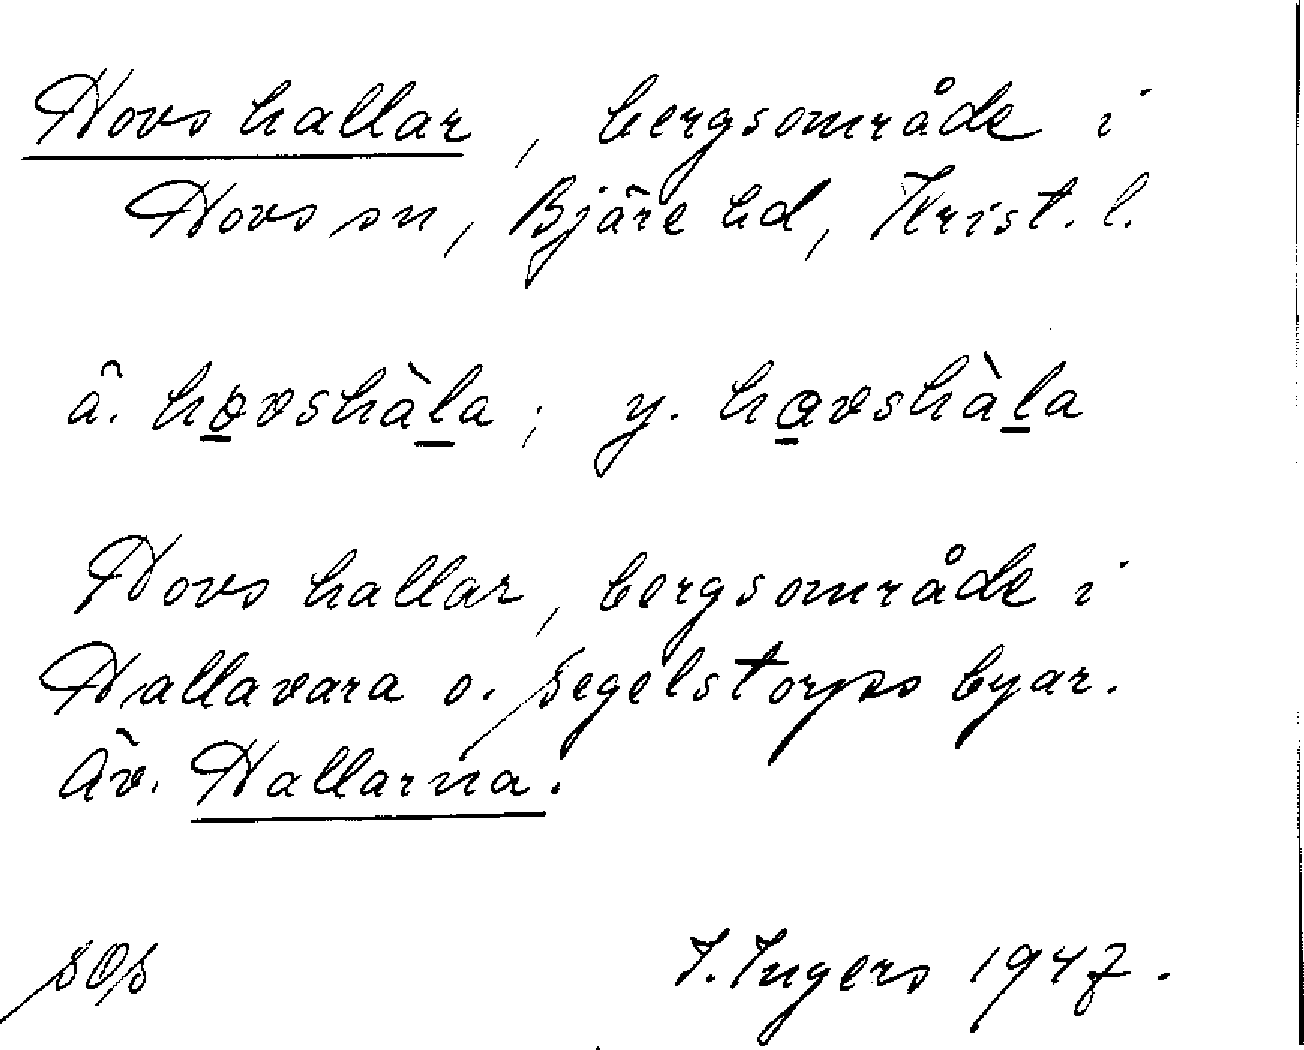 Hovs hallar, bergsområde i
Hovs sn, Bjäre hd, Krist. l.
â. hovshàla; y. havshàla
Hovs hallar, bergsområde i
Hallavara o. Segelstorps byar.
Äv. Hallarna.
sOs I. Ingers 1947.